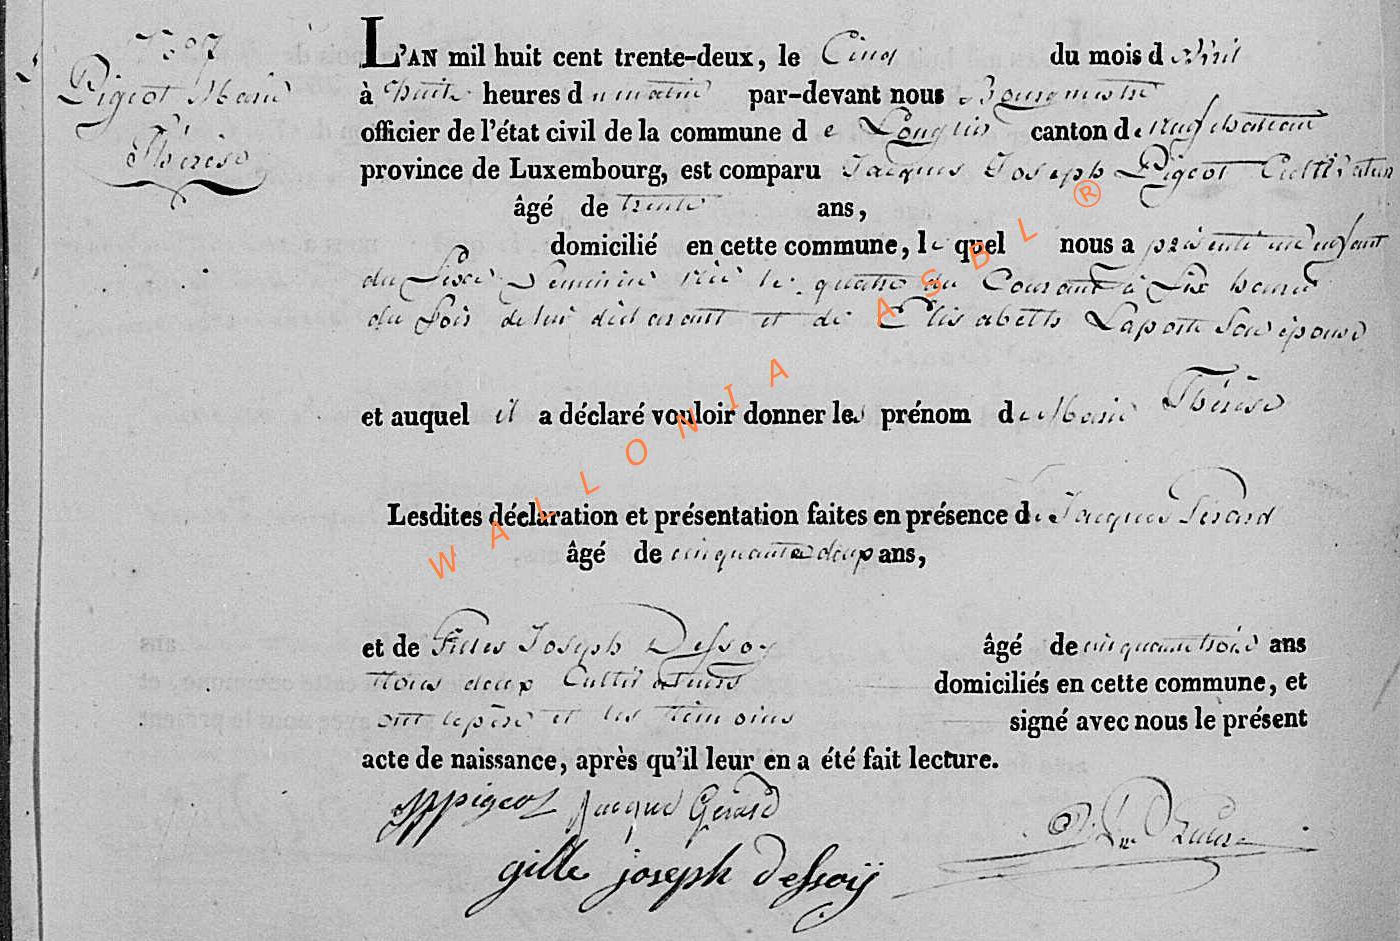 Pigeot Marie
Thérèse
L'AN mil huit cent trente-deux, le Cinq du mois d'Avril
à huit heures du matin par-devant nous Bourgmestre
officier de l'état civil de la commune de Longlier canton de Neufchateau
province de Luxembourg, est comparu Jacques Joseph Pigeot Cultivateur
âgé de trente ans,
domicilié en cette commune, lequel nous a présenté un enfant
du Sexe Feminin née le quatre du Courant à Six heures
du Soir de lui déclarant et de Elisabeth Laporte Son épouse
et auquel il a déclaré vouloir donner les prénom de Marie Thérèse
Lesdites déclaration et présentation faites en présence de Jacques Gerard
âgé de cinquante deux ans,
et de Gilles Joseph Dessoy âgé de cinquante trois ans
tous deux Cultivateurs domiciliés en cette commune, et
ont le père et les témoins signé avec nous le présent
acte de naissance, après qu'il leur en a été fait lecture.
JJ pigeot Jacque Gerard
gille joseph Dessoÿ
WALLONIA ASBL ®